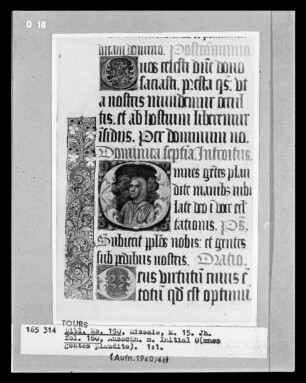 D 10
dicam domino. Postcommunio.
Quos celesti dñe dono
saciasti. presta qs. vt
a nostris mundemur occul
tis. et ab hostium liberemur
insidiis. Per dominum no.
Dominica septĩa. Introitus.
Omnes gẽtes plau
dite manib⁹ iubi
late deo ĩ voce exl
tationis. Ps.
Subiecit pp̃los nobis: et gentes
sub pedibus nostris. Oratio.
Deus virtutũ cuius ẽ
totũ qd̃ est optimũ
165 314
TOURS
Bibl. Ms. 190. Missale, E. 15. Jh.
fol. 160, Ausschn. m. Initial O(mnes
gentes plaudite). 1:1.
(Aufn.1940/44)